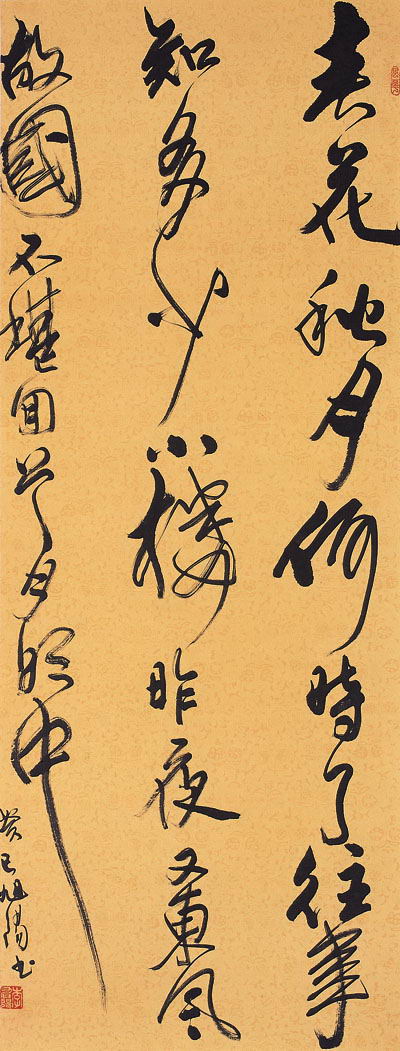 春花秋月何时了往事
知多少小楼昨夜又東风
故國不堪回首月明中
癸巳旭陽书